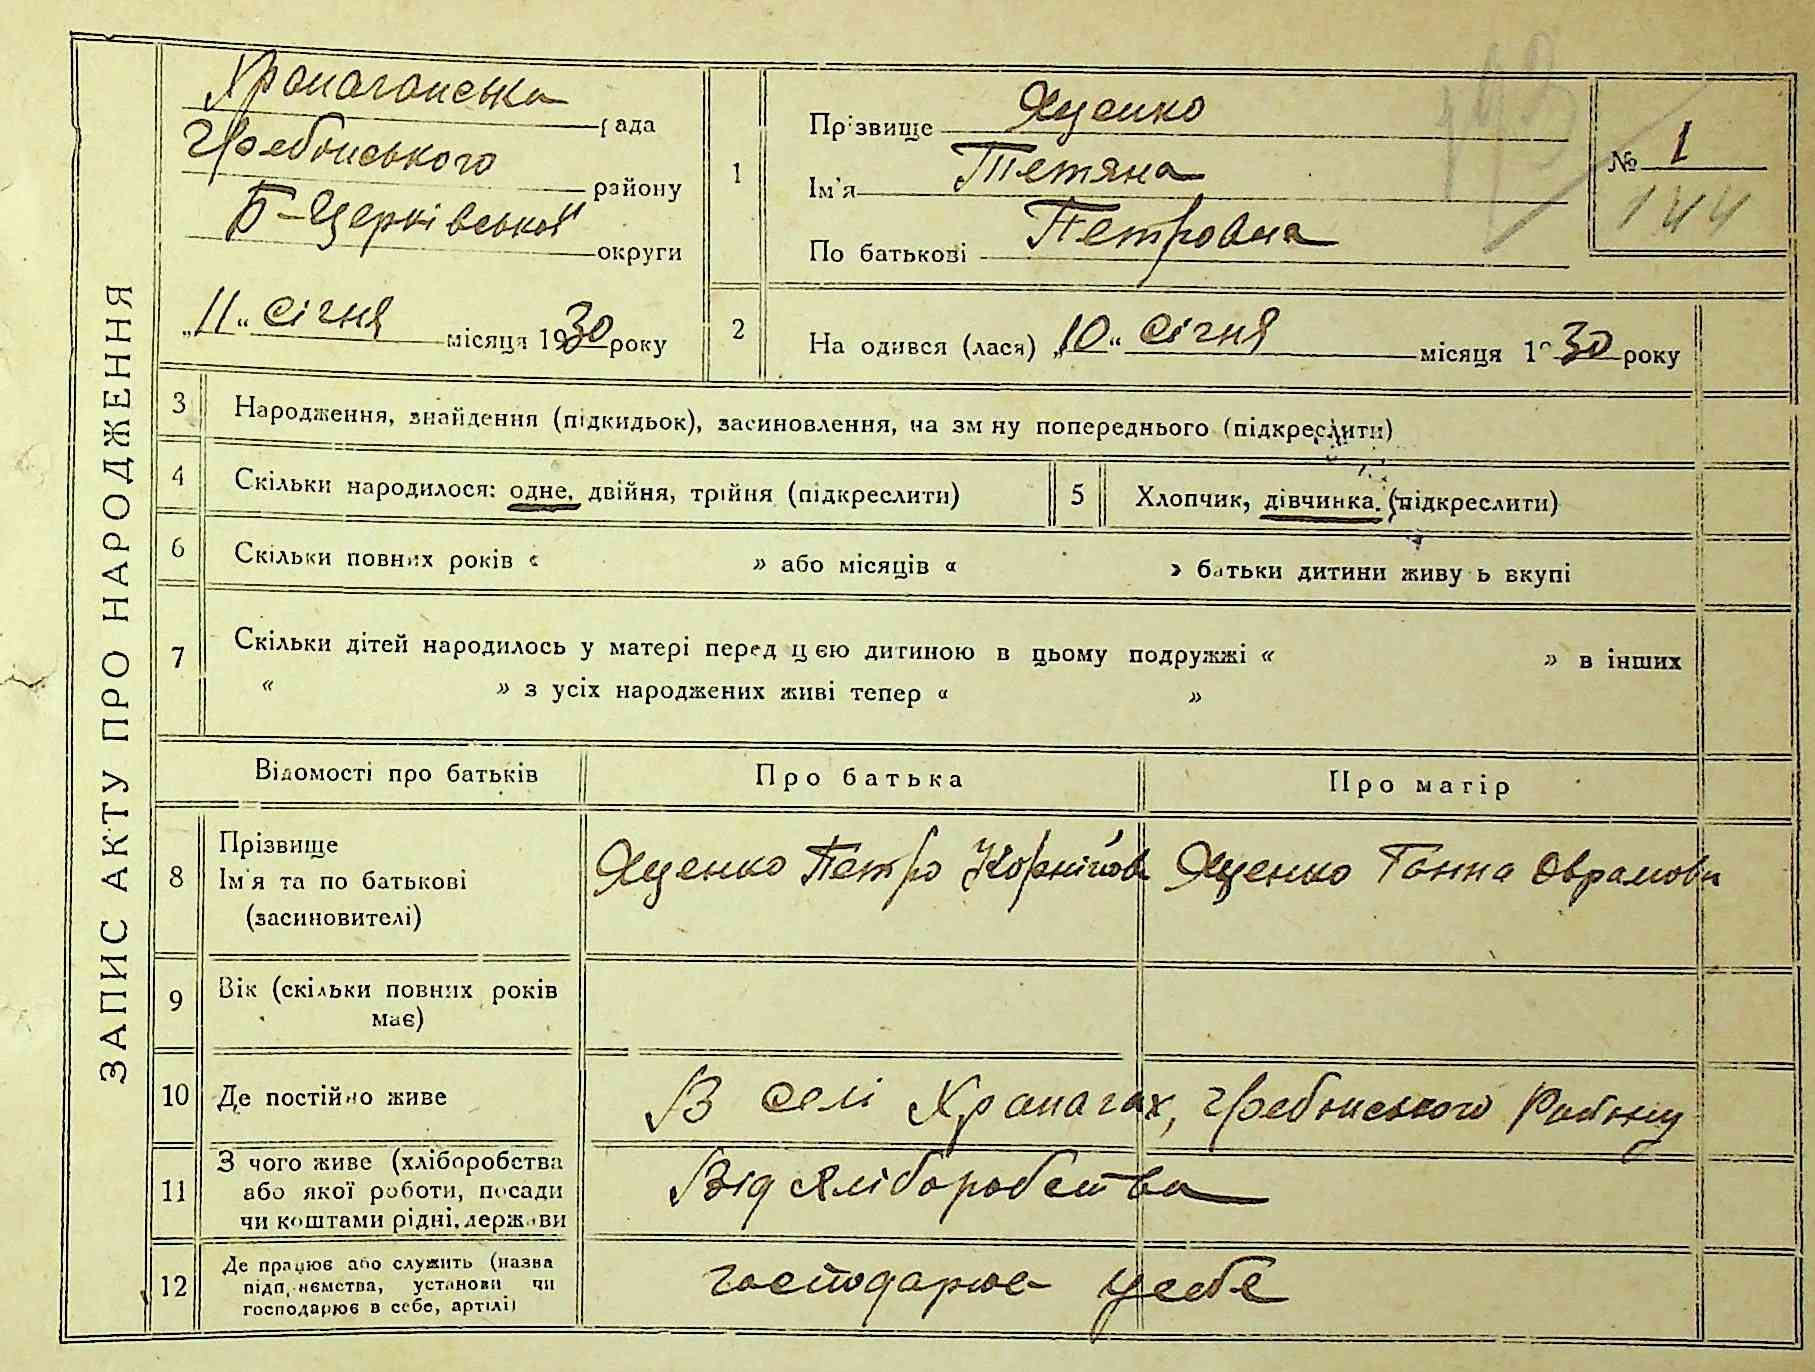 ЗАПИС АКТУ ПРО НАРОДЖЕННЯ
Храпачанська рада
Гребінського району
Б-Церківської округи
„11“ січня місяця 1930 року
1
Прізвище Яценко
Ім'я Тетяна
По батькові Петровна
№ 1
143
144
2
На одився (лася) „10“ січня місяця 1930 року
3 Народження, знайдення (підкидьок), засиновлення, на зм ну попереднього (підкреслити)
4 Скільки народилося: одне, двійня, трійня (підкреслити)
5 Хлопчик, дівчинка. (підкреслити)
6 Скільки повних років « » або місяців « » батьки дитини живу ь вкупі
7 Скільки дітей народилось у матері перед цією дитиною в цьому подружжі « » в інших
« » з усіх народжених живі тепер « »
Відомості про батьків
Про батька
Про матір
8 Прізвище
Ім'я та по батькові
(засиновителі)
Яценко Петро Корнійов
Яценко Ганна Оврамовн
9 Вік (скільки повних років
має)
10 Де постійно живе
В селі Храпачах, Гребінського Району
11 З чого живе (хліборобства
або якої роботи, посади
чи коштами рідні, держави
Від хліборобства
12 Де працює або служить (назва
підп, нємства, установи чи
господарює в себе, артілі)
господарює усебе